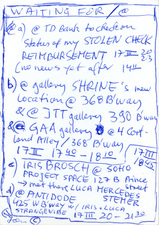 WAITING FOR / @
a) @ TD BANK to check on
Status of my STOLEN CHECK
REIMBURSEMENT 17 III 23
(no news yet after 14
b) @ gallery SHRINE's new
location @ 368 B'way
& @ JTT gallery 390 B'way
& GAA gallery @ 4 Cort-
land Alley / 368 B'way
17 III 17 45 - 18 10
c) IRIS BROSCH @ SOHO
PROJECT SPACE 127 B Prince
street
I met there LUCA MERCEDES
STEMER
d) @ ANTIDODE
425 W B'WAY c IRIS + LUCA
STRANGEVIBE 17 III 20 - 21 30